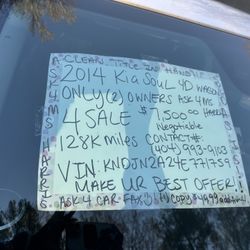 CLEAN TITLE IN HAND
2014 Kia Soul 4D WAGON
ONLY (2) OWNERS ASK 4 MS
4 SALE $7,500.00
Negotiable
128K miles CONTACT#:
(404) 993-9103
VIN: KNDJN2A24E7717591
MAKE UR BEST OFFER!
ASK 4 CAR FAX COPY
ASK 4 MS HARRIS